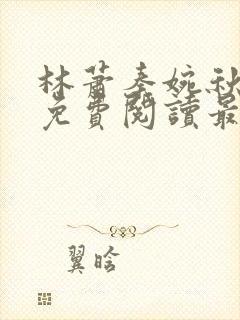 林蕭秦婉秋
免費閱讀最
翼晗